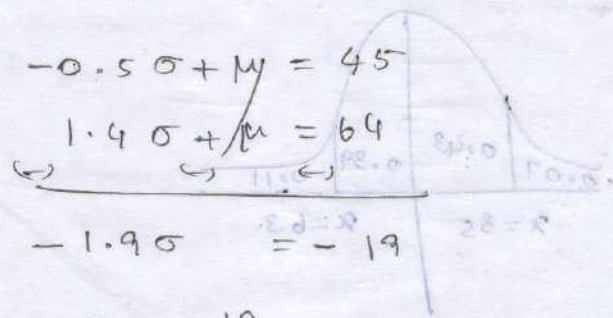 -0.5 σ + μ = 45
1.4 σ + μ = 64
(-) (-) (-)
-1.9 σ = - 19
19